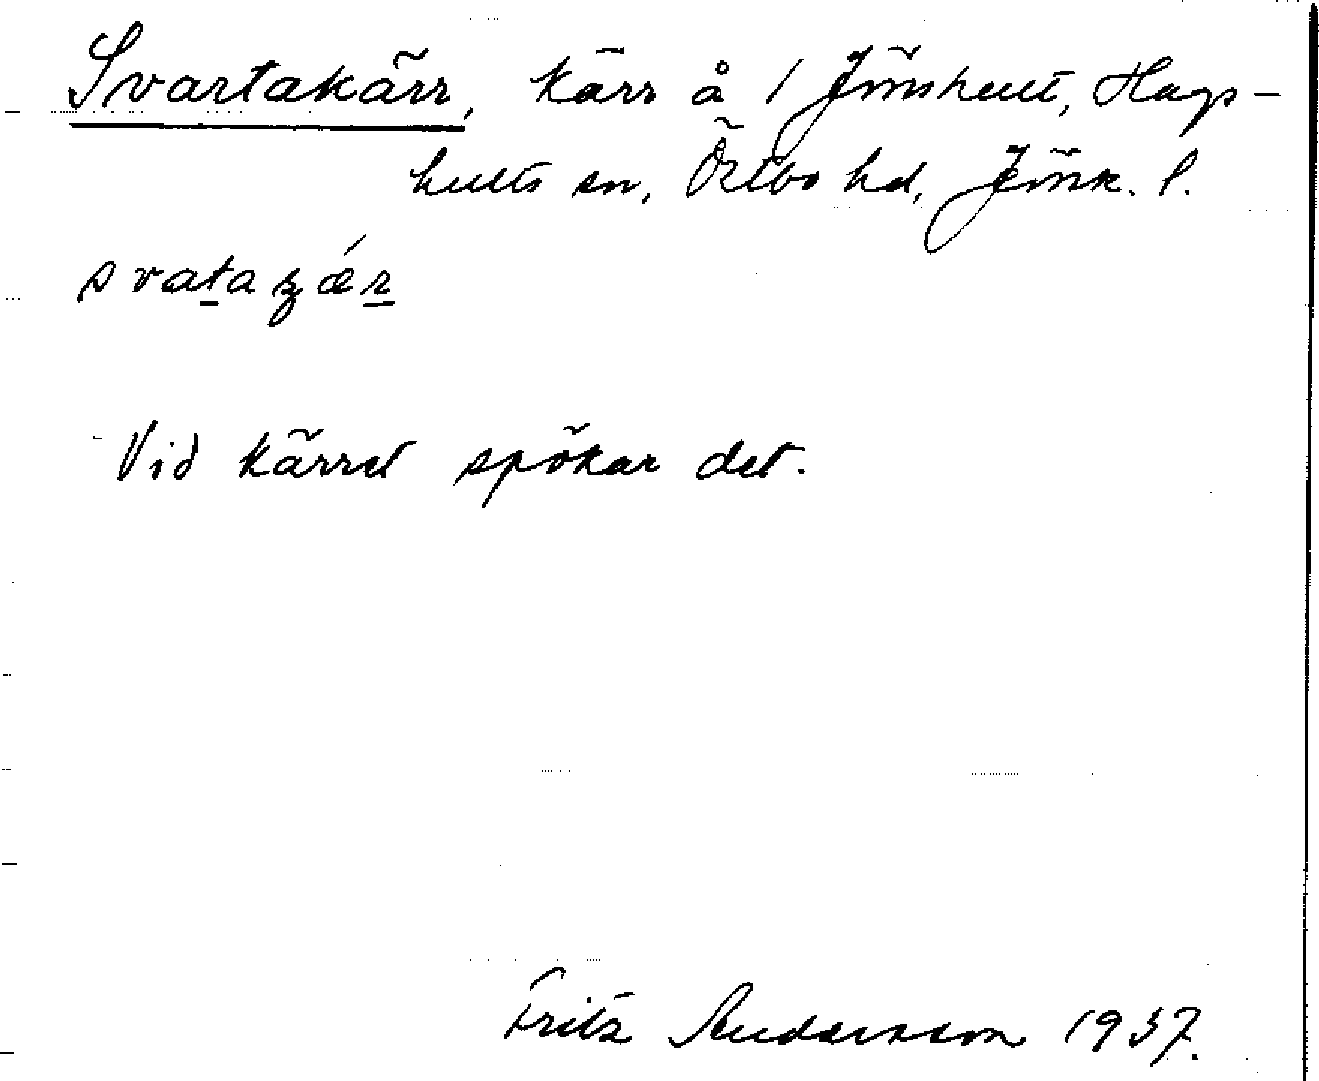 Svartakärr, kärr å / Jönshult, Hags-
hults sn, Östbo hd, Jönk. l.
svataʒǽr
Vid kärret spökar det.
Fritz Andersson 1937.